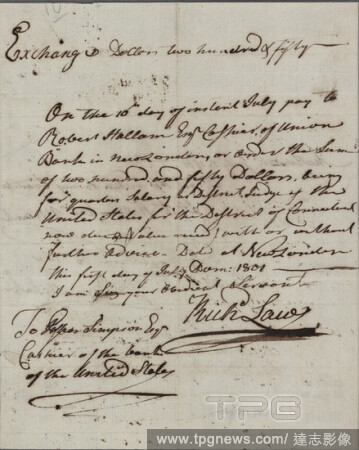 Exchange Dollars two hundred & fifty
On the 10th day of instent July pay to
Robert Hallam Esqr Cashier of Union
Bank in New London, or order the Sum
of two hundred and fifty Dollars, being
for quarter Salary as District Judge of the
United States for the District of Connecticut
now due Value recd with or without
further advice Dated at New London
this first day of July Dom: 1801
I am Sir your obedient Servant
Richd Law
To Simpson Esqr
Cashier of the bank
of the United States
TPG
www.tpgnews.com / 達志影像